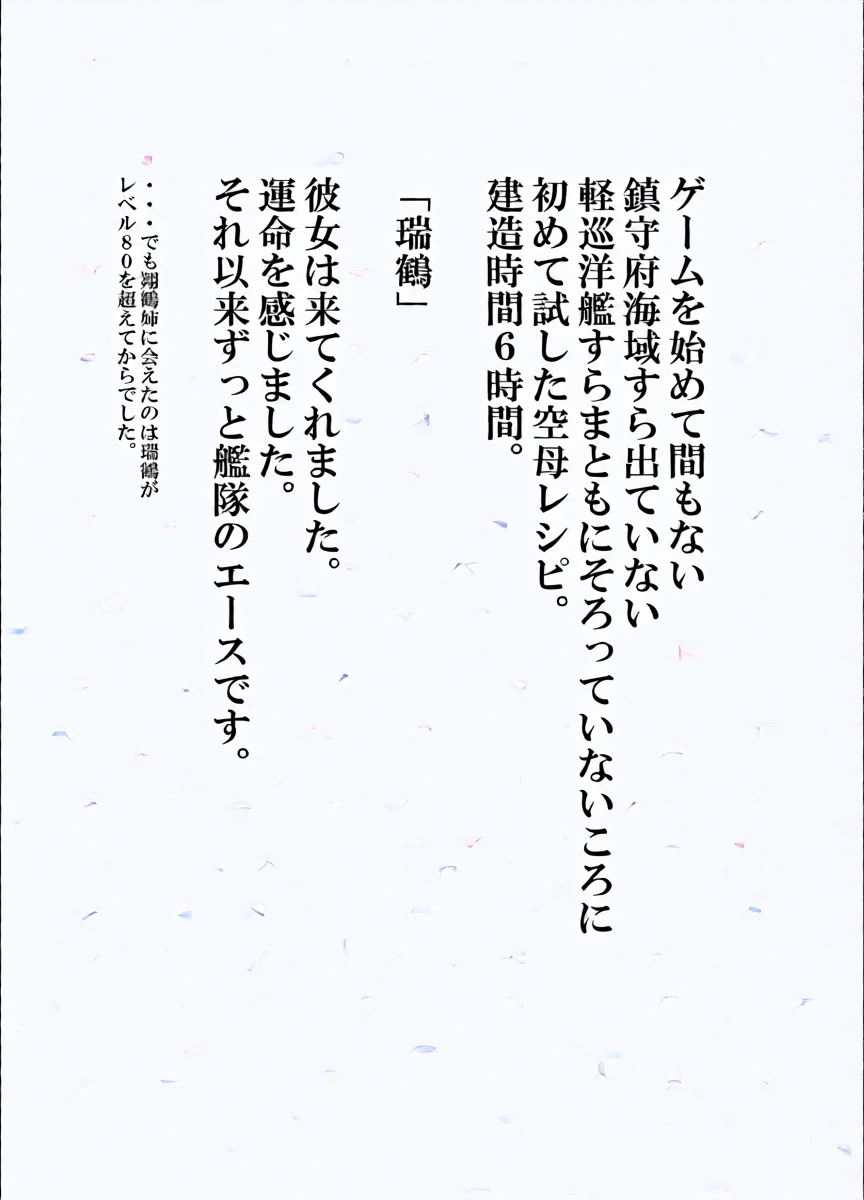 ゲームを始めて間もない
鎮守府海域すら出ていない
軽巡洋艦すらまともにそろっていないころに
初めて試した空母レシピ。
建造時間６時間。
「瑞鶴」
彼女は来てくれました。
運命を感じました。
それ以来ずっと艦隊のエースです。
・・・でも翔鶴姉に会えたのは瑞鶴が
レベル８０を超えてからでした。